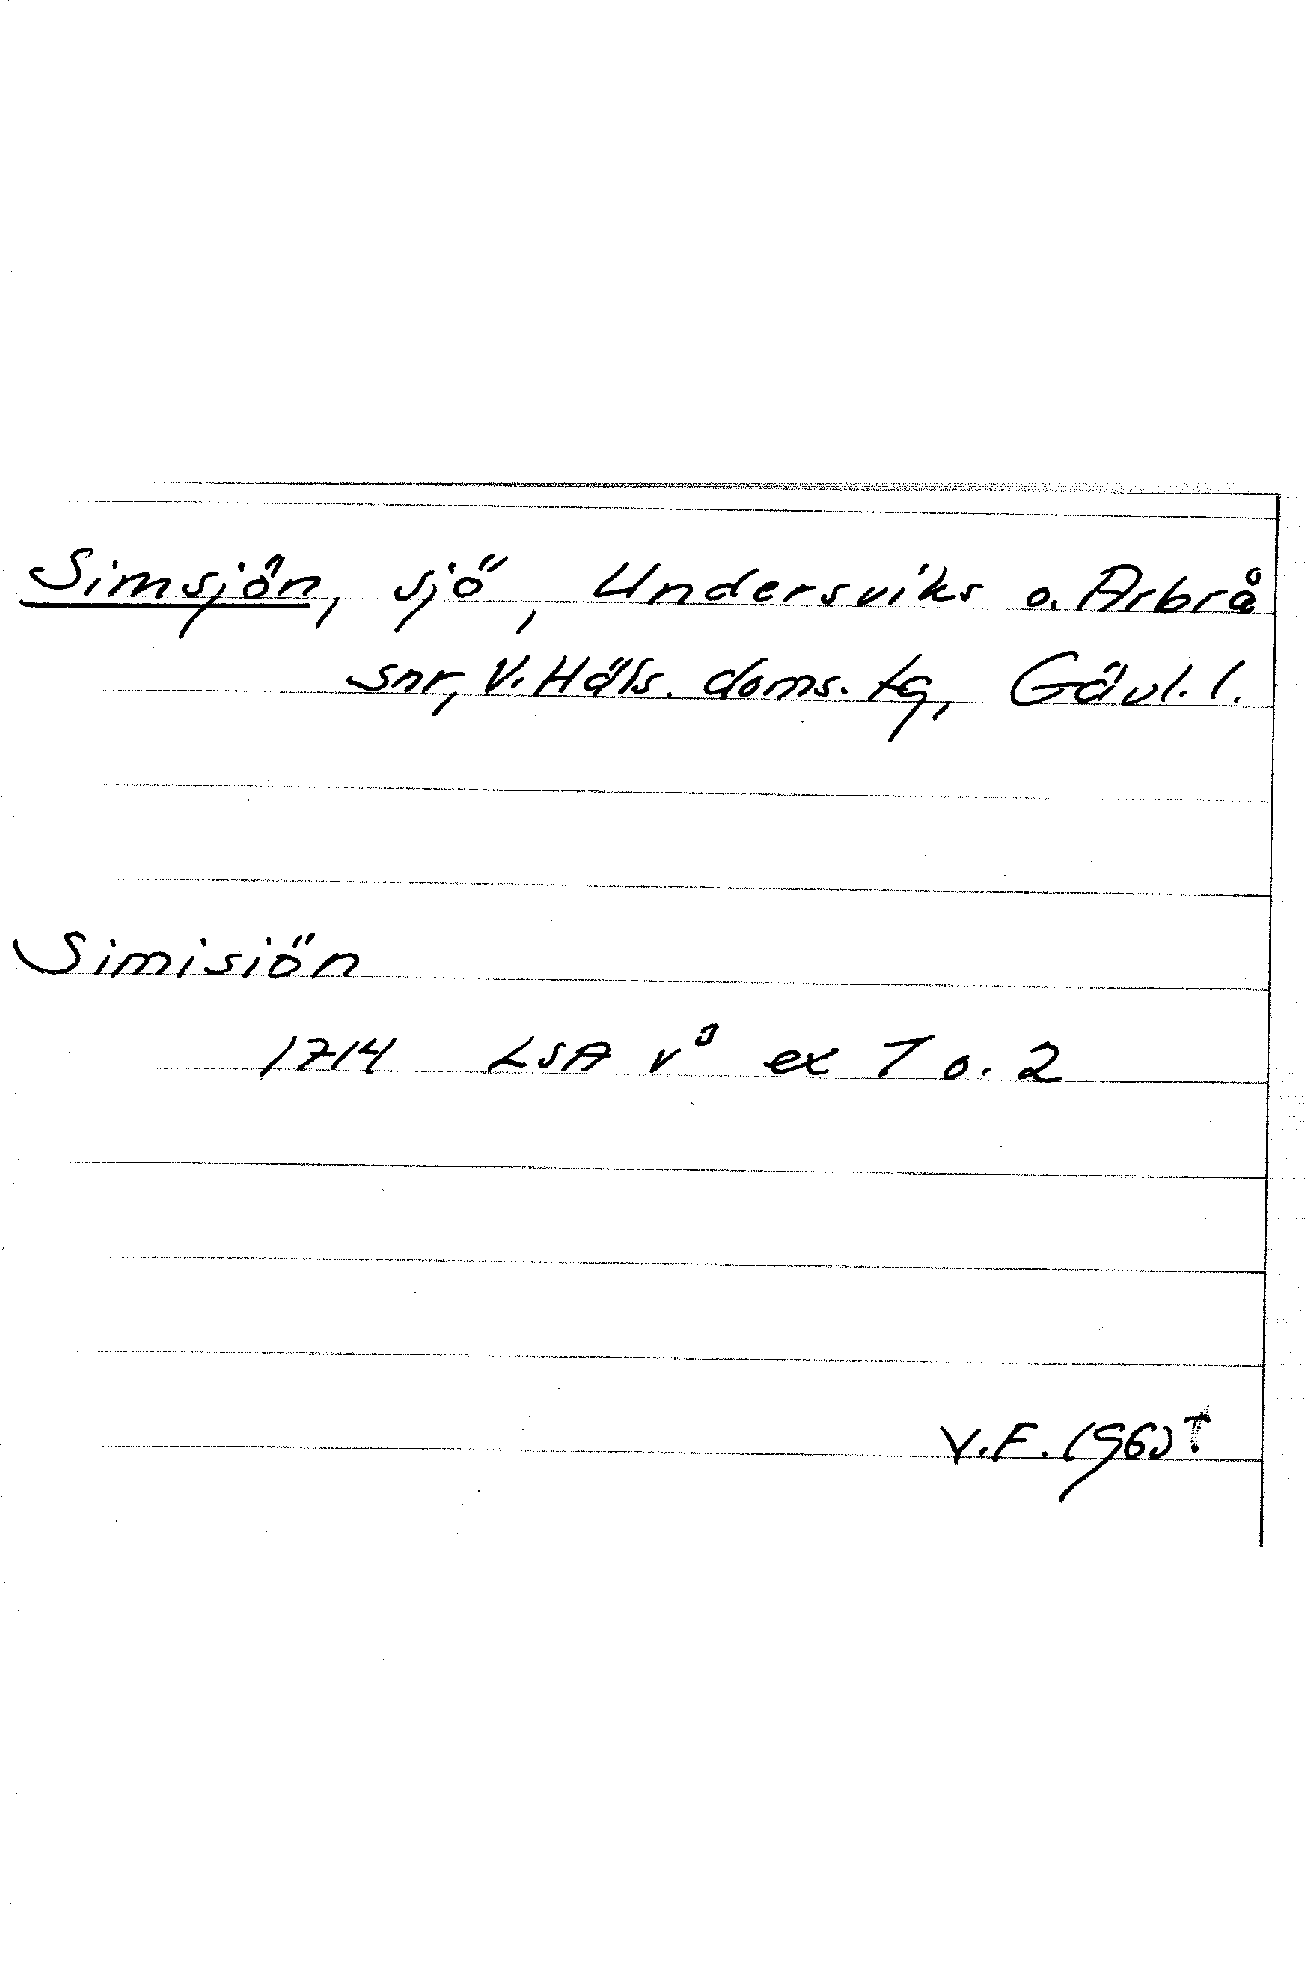 Simsjön, sjö, Undersviks o. Arbrå
snr, V. Häls. doms. tg, Gävl. l.
Simisiön
1714 LSA v³ ex 1 o. 2
V.F. 1960